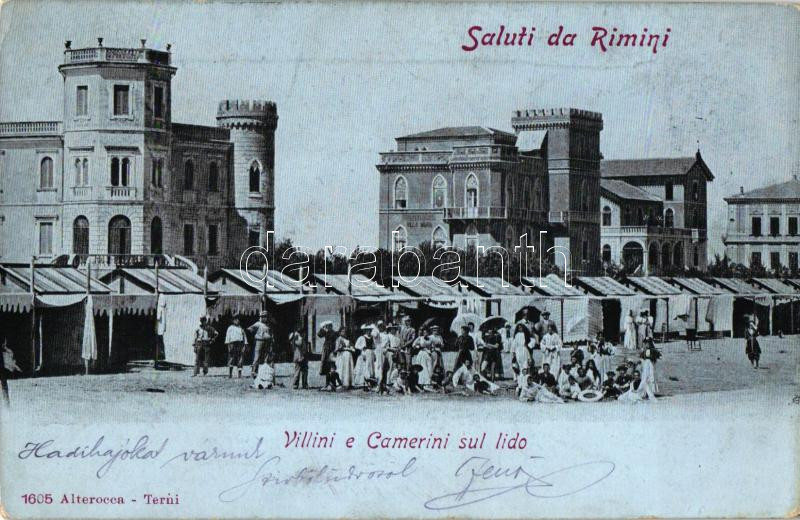 Saluti da Rimini
darabanth
Villini e Camerini sul lido
Hadihajókat várunk
Jenő
1605 Alterocca - Terni